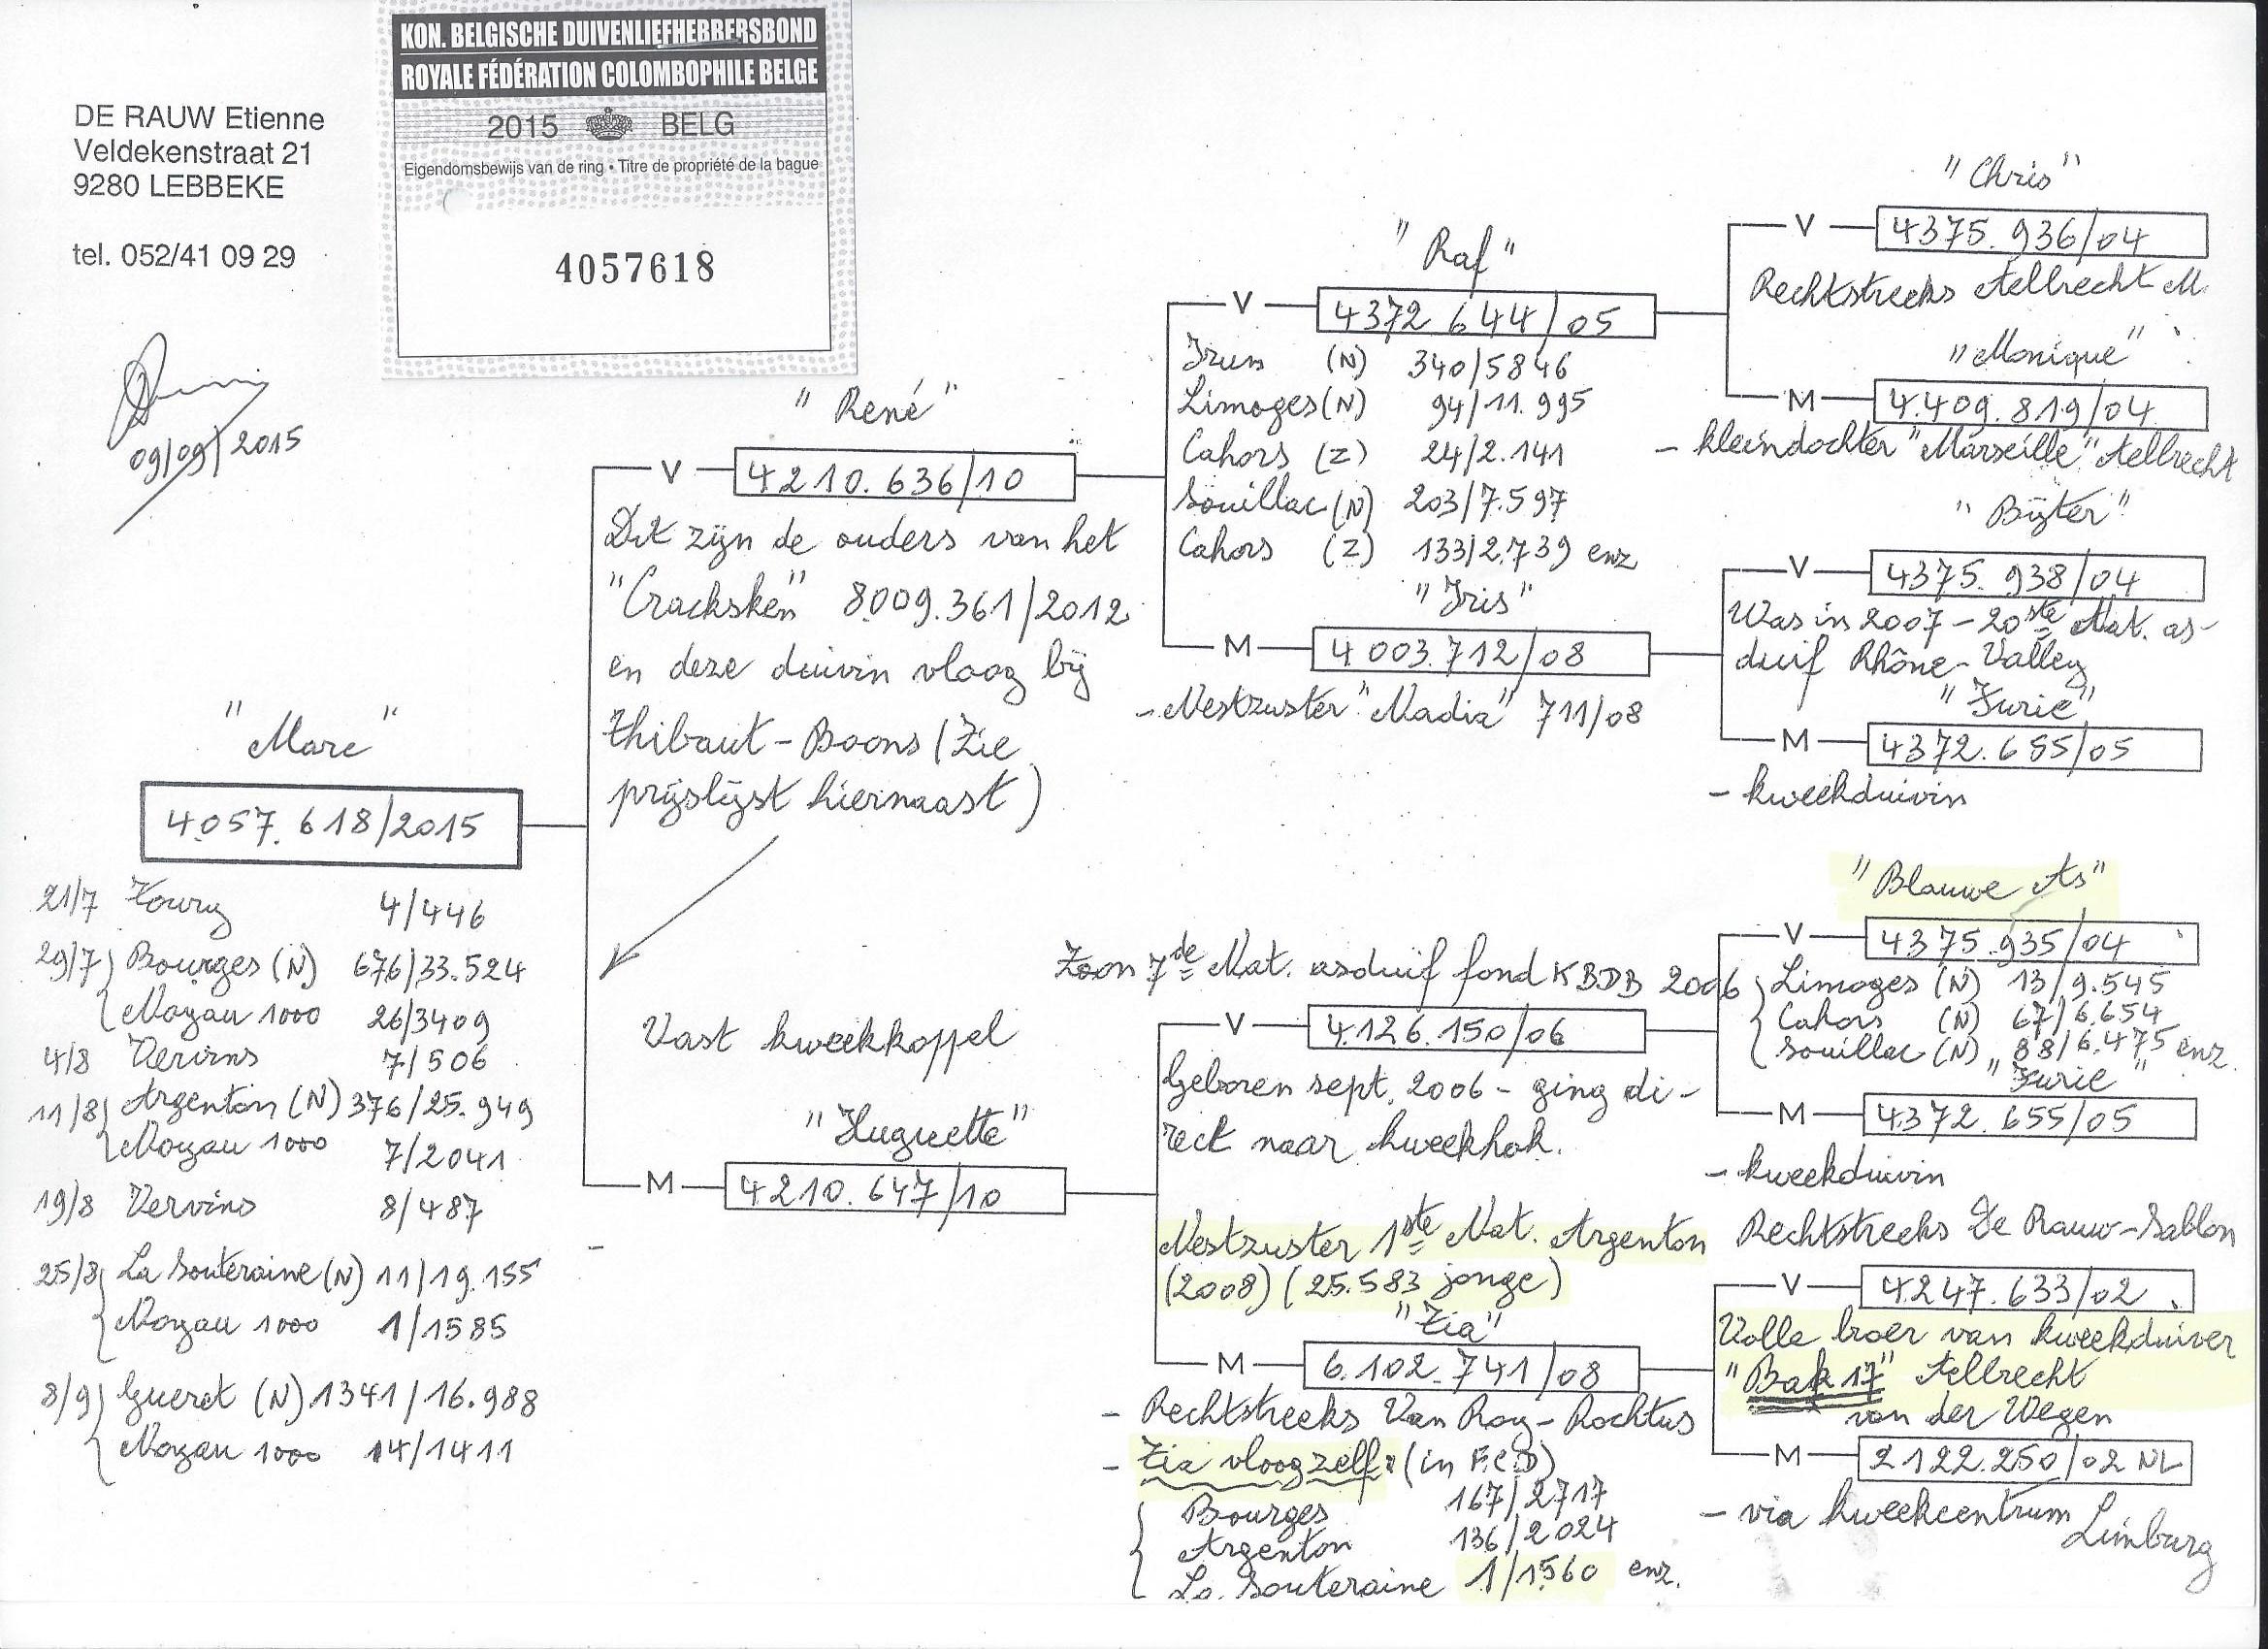 KON. BELGISCHE DUIVENLIEFHEBBERSBOND
ROYALE FÉDÉRATION COLOMBOPHILE BELGE
2015 BELG
Eigendomsbewijs van de ring • Titre de propriété de la bague
4057618
DE RAUW Etienne
Veldekenstraat 21
9280 LEBBEKE
tel. 052/41 09 29
09/09/2015
"Marc"
4.057.618/2015
21/7 Toury 4/446
29/7 Bourges (N) 676/33.524
Noyau 1000 26/3409
4/8 Vervins 7/506
11/8 Argenton (N) 376/25.949
Noyau 1000 7/2041
19/8 Vervins 8/487
25/8 La Souteraine (N) 11/19.155
Noyau 1000 1/1585
8/9 Gueret (N) 1341/16.988
Noyau 1000 14/1411
"René"
V 4210.636/10
Dit zijn de ouders van het
"Cracksken" 8009.361/2012
en deze duivin vloog bij
Thibaut-Boons (Zie
prijslijst hiernaast)
Vast kweekkoppel
"Huguette"
M 4210.647/10
"Raf"
V 4372 644/05
Irun (N) 340/5846
Limoges (N) 94/11.995
Cahors (Z) 24/2.141
Souillac (N) 203/7.597
Cahors (Z) 133/2.739 enz
"Iris"
M 4003.712/08
- Nestzuster "Nadia" 711/08
Zoon 7de Nat. asduif fond KBDB 2006
V 4.126.150/06
Geboren sept. 2006 - ging di-
rect naar kweekhok.
Nestzuster 1ste Nat. Argenton
(2008) (25.583 jonge)
"Zia"
M 6.102.741/08
- Rechtstreeks Van Roy-Rochtus
- Zia vloog zelf: (in F.C.D)
Bourges 167/2717
Argenton 136/2024
La Souteraine 1/1560 enz.
"Chris"
V 4375.936/04
Rechtstreeks Aelbrecht M.
"Monique"
M 4.409.819/04
- kleindochter "Marseille" Aelbrecht
"Bijter"
V 4375.938/04
Was in 2007 - 20ste Nat. as-
duif Rhône-Valley
"Furie"
M 4372.655/05
- kweekduivin
"Blauwe As"
V 4375.935/04
Limoges (N) 13/9.545
Cahors (N) 67/6.654
Souillac (N) 88/6.475 enz.
"Furie"
M 4372.655/05
- kweekduivin
Rechtstreeks De Rauw-Sablon
V 4.247.633/02
Volle broer van kweekduiver
"Bak 17" Aelbrecht
van der Wegen
M 2122.250/02 NL
- via kweekcentrum
Limburg